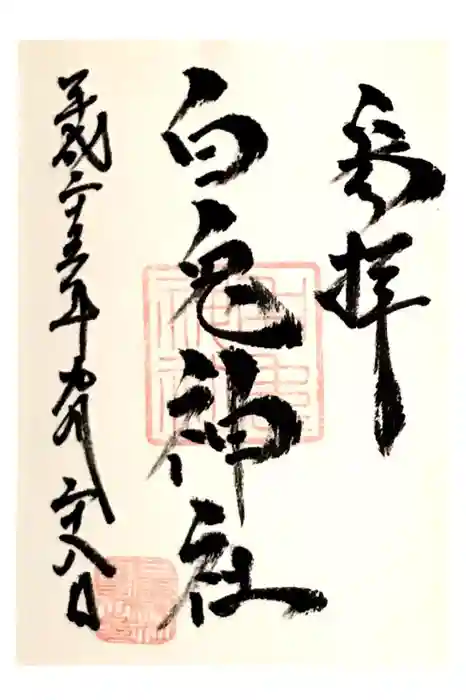 奉拝
白兎神社
平成二十五年九月二十八日